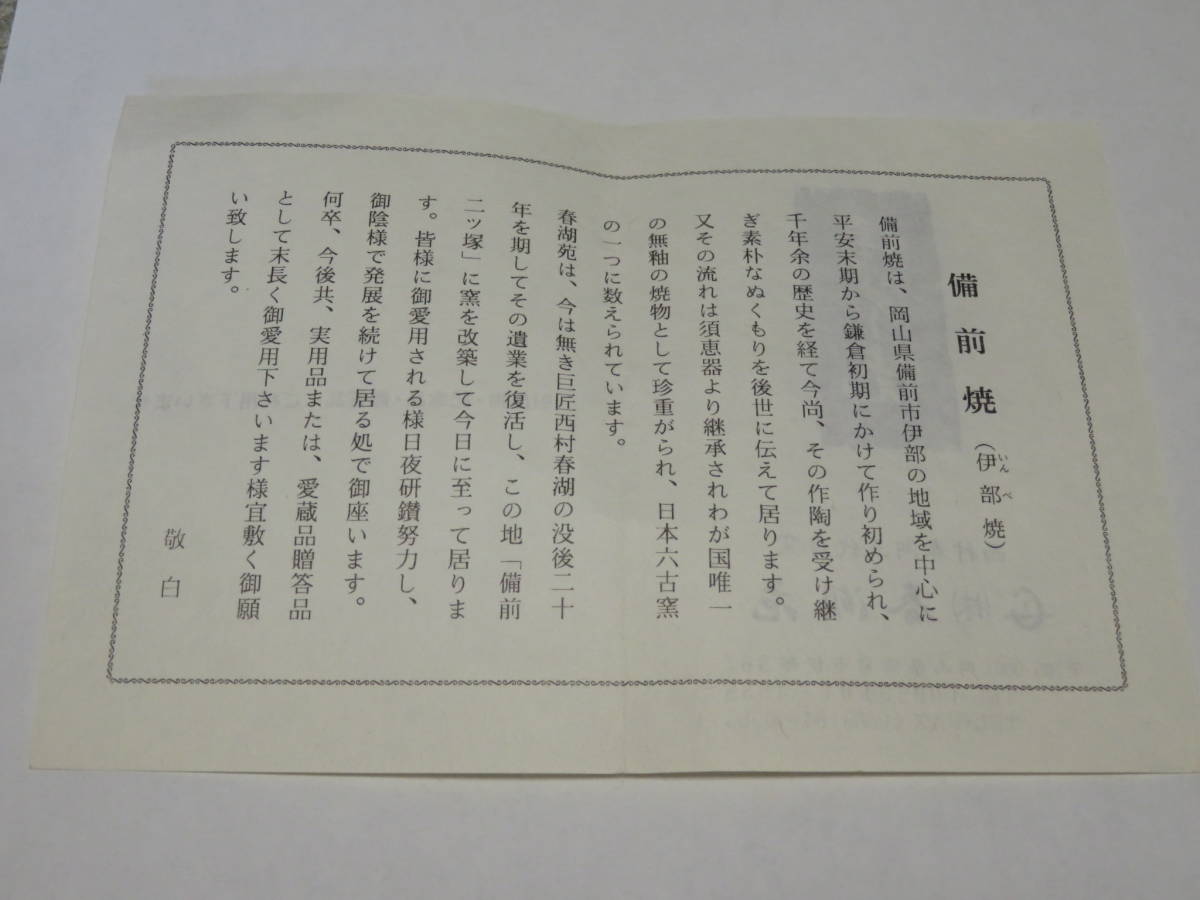 備前焼（伊部焼）
いんべ
備前焼は、岡山県備前市伊部の地域を中心に
平安末期から鎌倉初期にかけて作り初められ、
千年余の歴史を経て今尚、その作陶を受け継
ぎ素朴なぬくもりを後世に伝えて居ります。
又その流れは須恵器より継承されわが国唯一
の無釉の焼物として珍重がられ、日本六古窯
の一つに数えられています。
春湖苑は、今は無き巨匠西村春湖の没後二十
年を期してその遺業を復活し、この地「備前
二ッ塚」に窯を改築して今日に至って居りま
す。皆様に御愛用される様日夜研鑽努力し、
御陰様で発展を続けて居る処で御座います。
何卒、今後共、実用品または、愛蔵品贈答品
として末長く御愛用下さいます様宜敷く御願
い致します。
敬白